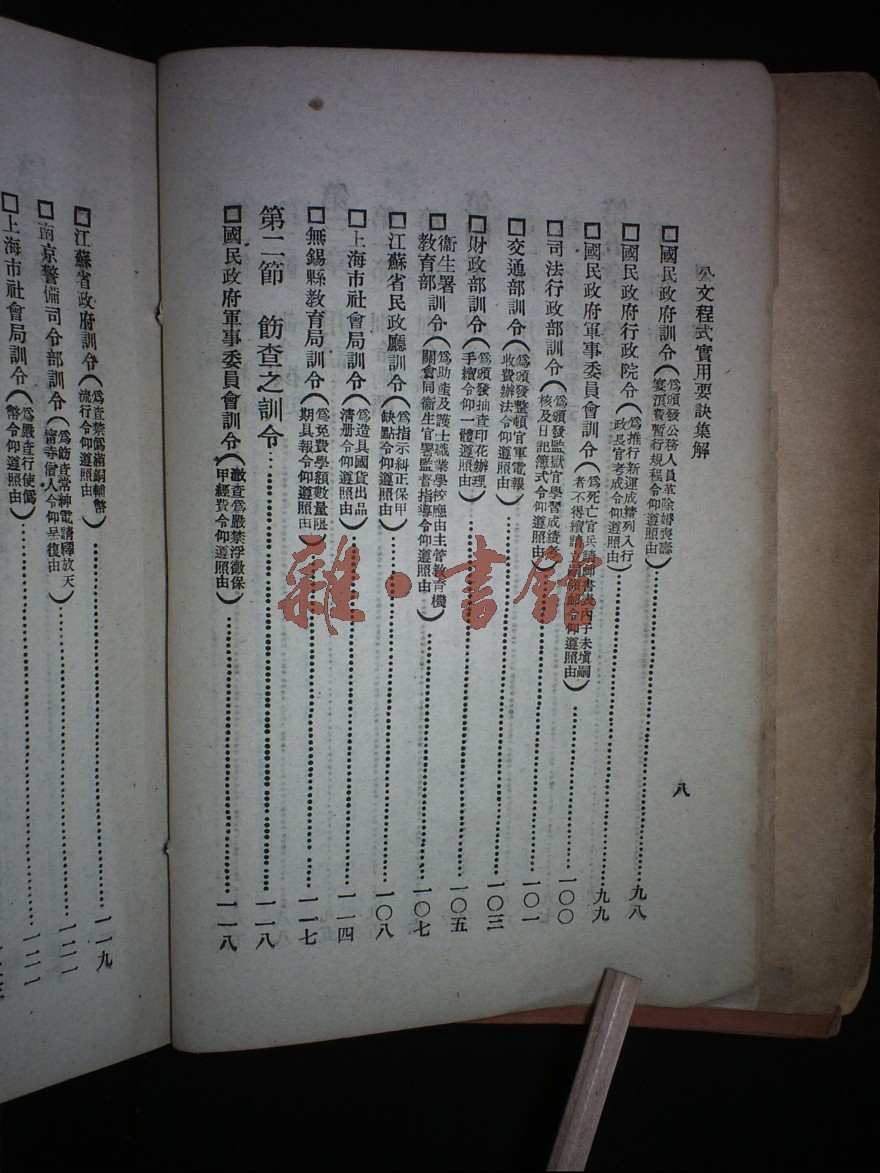 公文程式實用要訣集解
八
□國民政府訓令(爲頒發公務人員革除婚喪壽宴浪費暫行規程令仰遵照由)……九八
□國民政府行政院令(爲推行新運成績列入行政長官考成令仰遵照由)……九九
□國民政府軍事委員會訓令(爲死亡官兵請卹書表內子未塡嗣者不得續請令仰遵照由)……一〇〇
□司法行政部訓令(爲頒發監獄官學習成績考核及日記簿式令仰遵照由)……一〇一
□交通部訓令(爲頒發整頓官軍電報收費辦法令仰遵照由)……一〇三
□財政部訓令(爲頒發抽查印花辦理手續令仰一體遵照由)……一〇五
□衞生署教育部訓令(爲助產及護士職業學校應由主管教育機關會同衞生官署監督指導令仰遵照由)……一〇七
□江蘇省民政廳訓令(爲指示糾正保甲缺點令仰遵照由)……一〇八
□上海市社會局訓令(爲造具國貨出品清册令仰遵照由)……一一四
□無錫縣教育局訓令(爲免費學額數量限期具報令仰遵照由)……一一七
第二節 飭查之訓令……一一八
□國民政府軍事委員會訓令(澈查爲嚴禁浮徵保甲經費令仰遵照由)……一一八
□江蘇省政府訓令(爲查禁僞滿銅輔幣流行令仰遵照由)……一一九
□南京警備司令部訓令(爲飭查常紳電請釋放天甯寺僧人令仰呈復由)……一二一
□上海市社會局訓令(爲嚴查行使僞幣令仰遵照由)……一二一
雜·書館